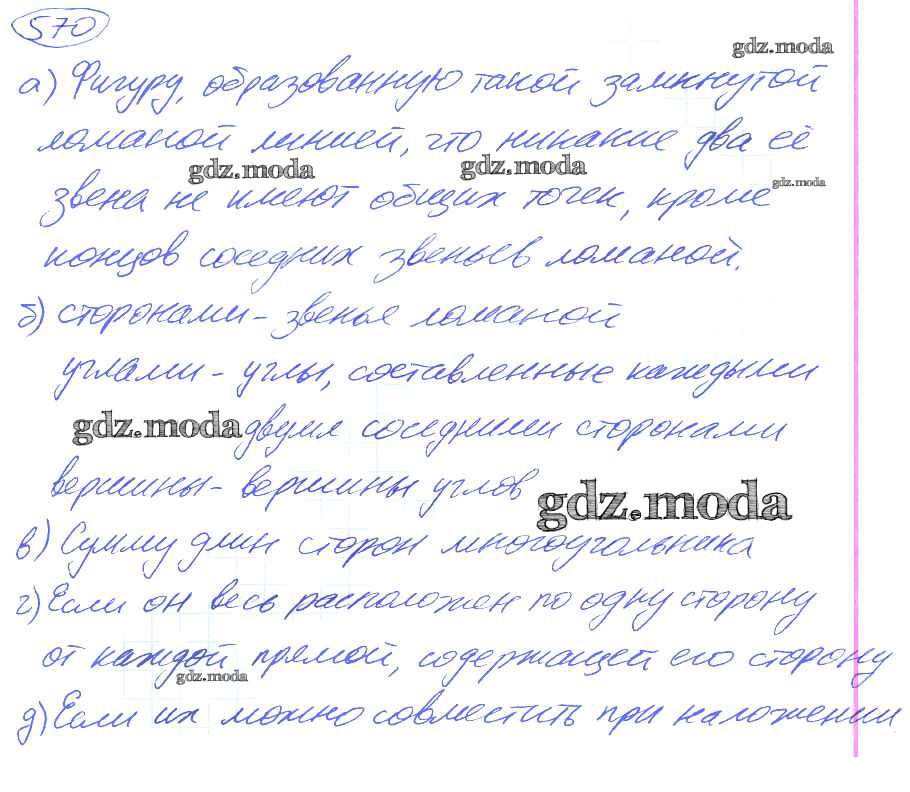 570
gdz.moda
а) Фигуру, образованную такой замкнутой
ломаной линией, что никакие два её
gdz.moda gdz.moda gdz.moda
звена не имеют общих точек, кроме
концов соседних звеньев ломаной.
б) сторонами - звенья ломаной
углами - углы, составленные каждыми
gdz.moda двумя соседними сторонами
вершины - вершины углов
gdz.moda
в) Сумму длин сторон многоугольника
г) Если он весь расположен по одну сторону
от каждой прямой, содержащей его сторону
gdz.moda
д) Если их можно совместить при наложении